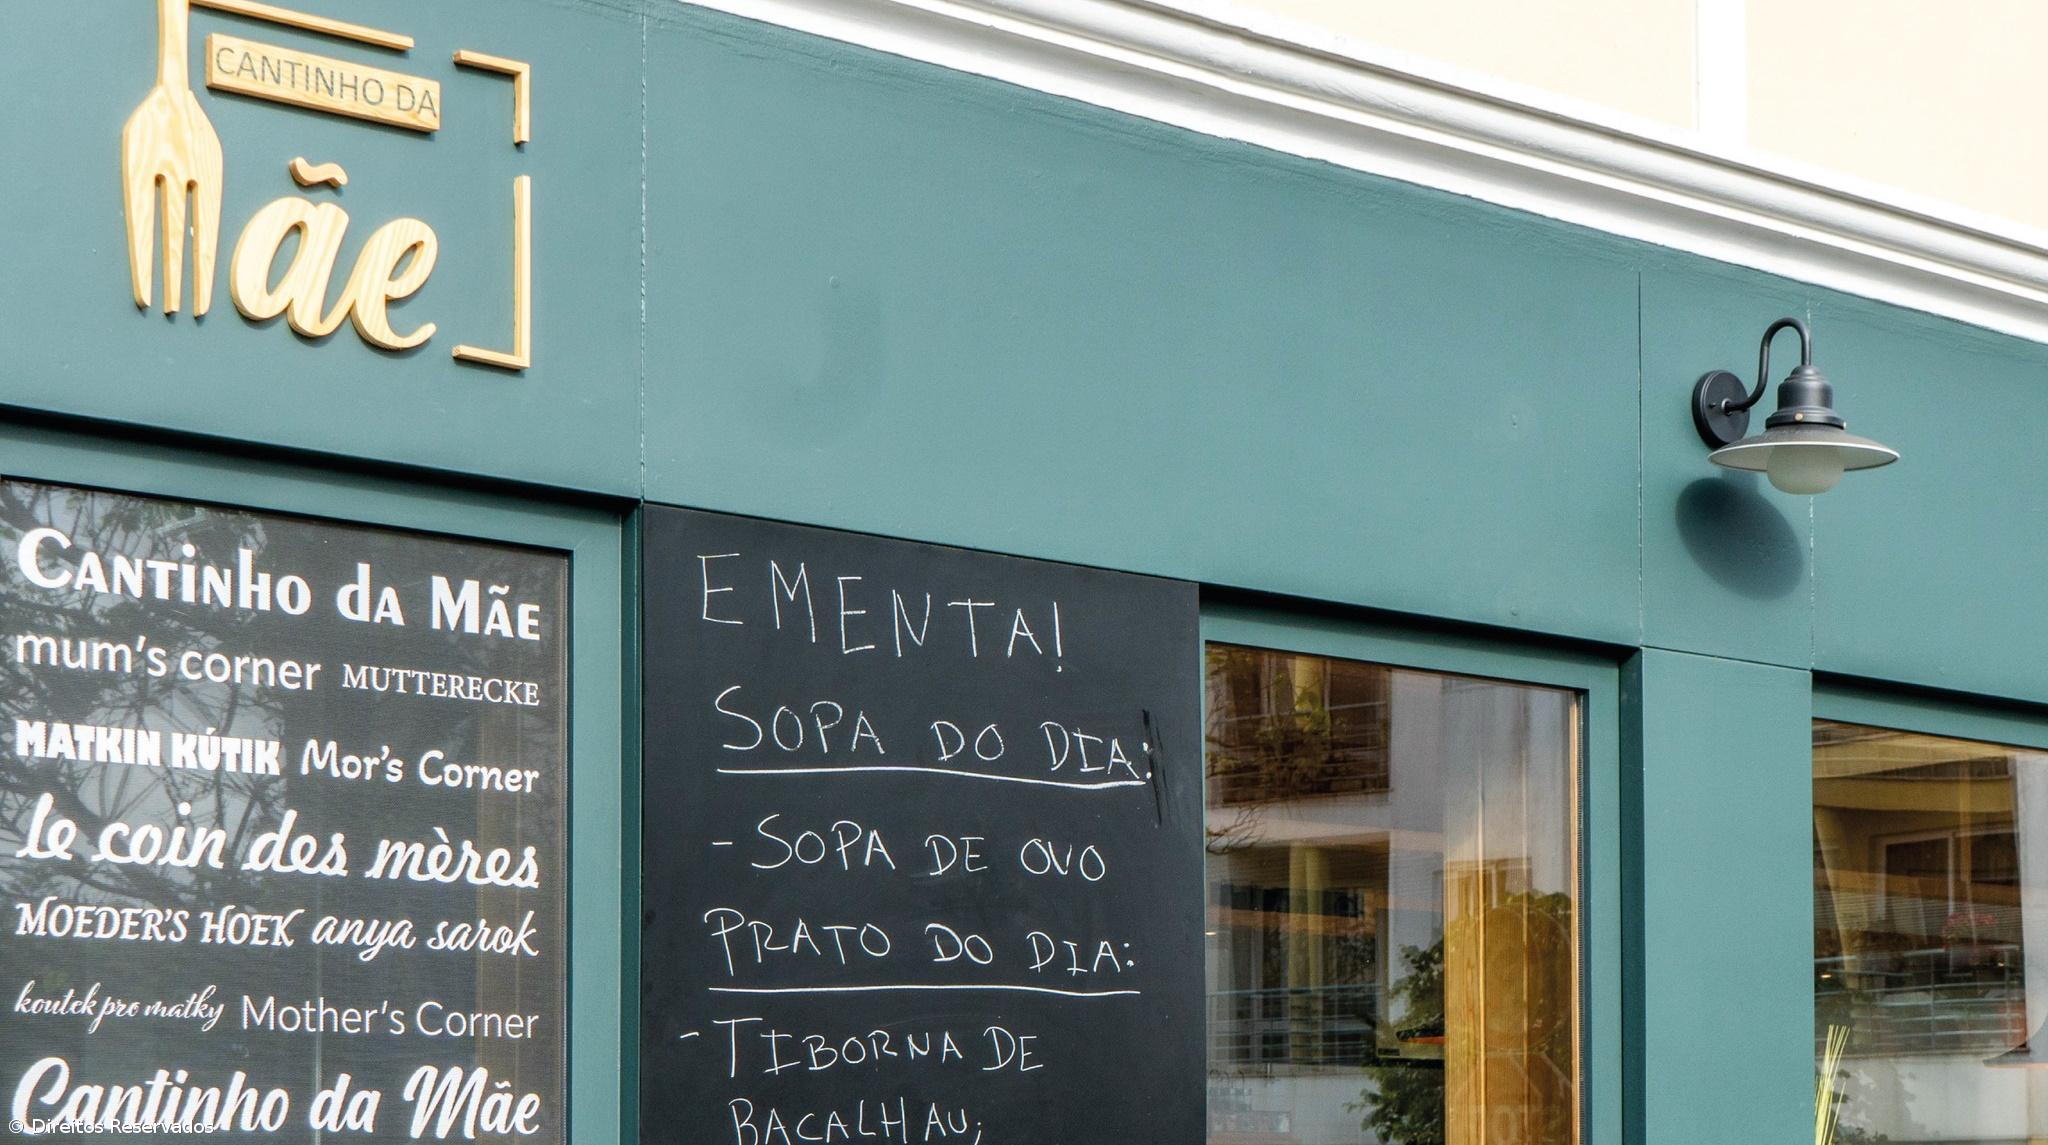 CANTINHO DA
mãe
Cantinho da Mãe
mum's corner MUTTERECKE
MATKIN KÚTIK Mor's Corner
le coin des mères
MOEDER'S HOEK anya sarok
koutek pro matky Mother's Corner
Cantinho da Mãe
EMENTA!
SOPA DO DIA:
- SOPA DE OVO
PRATO DO DIA:
- TIBORNA DE
BACALHAU;
© Direitos Reservados